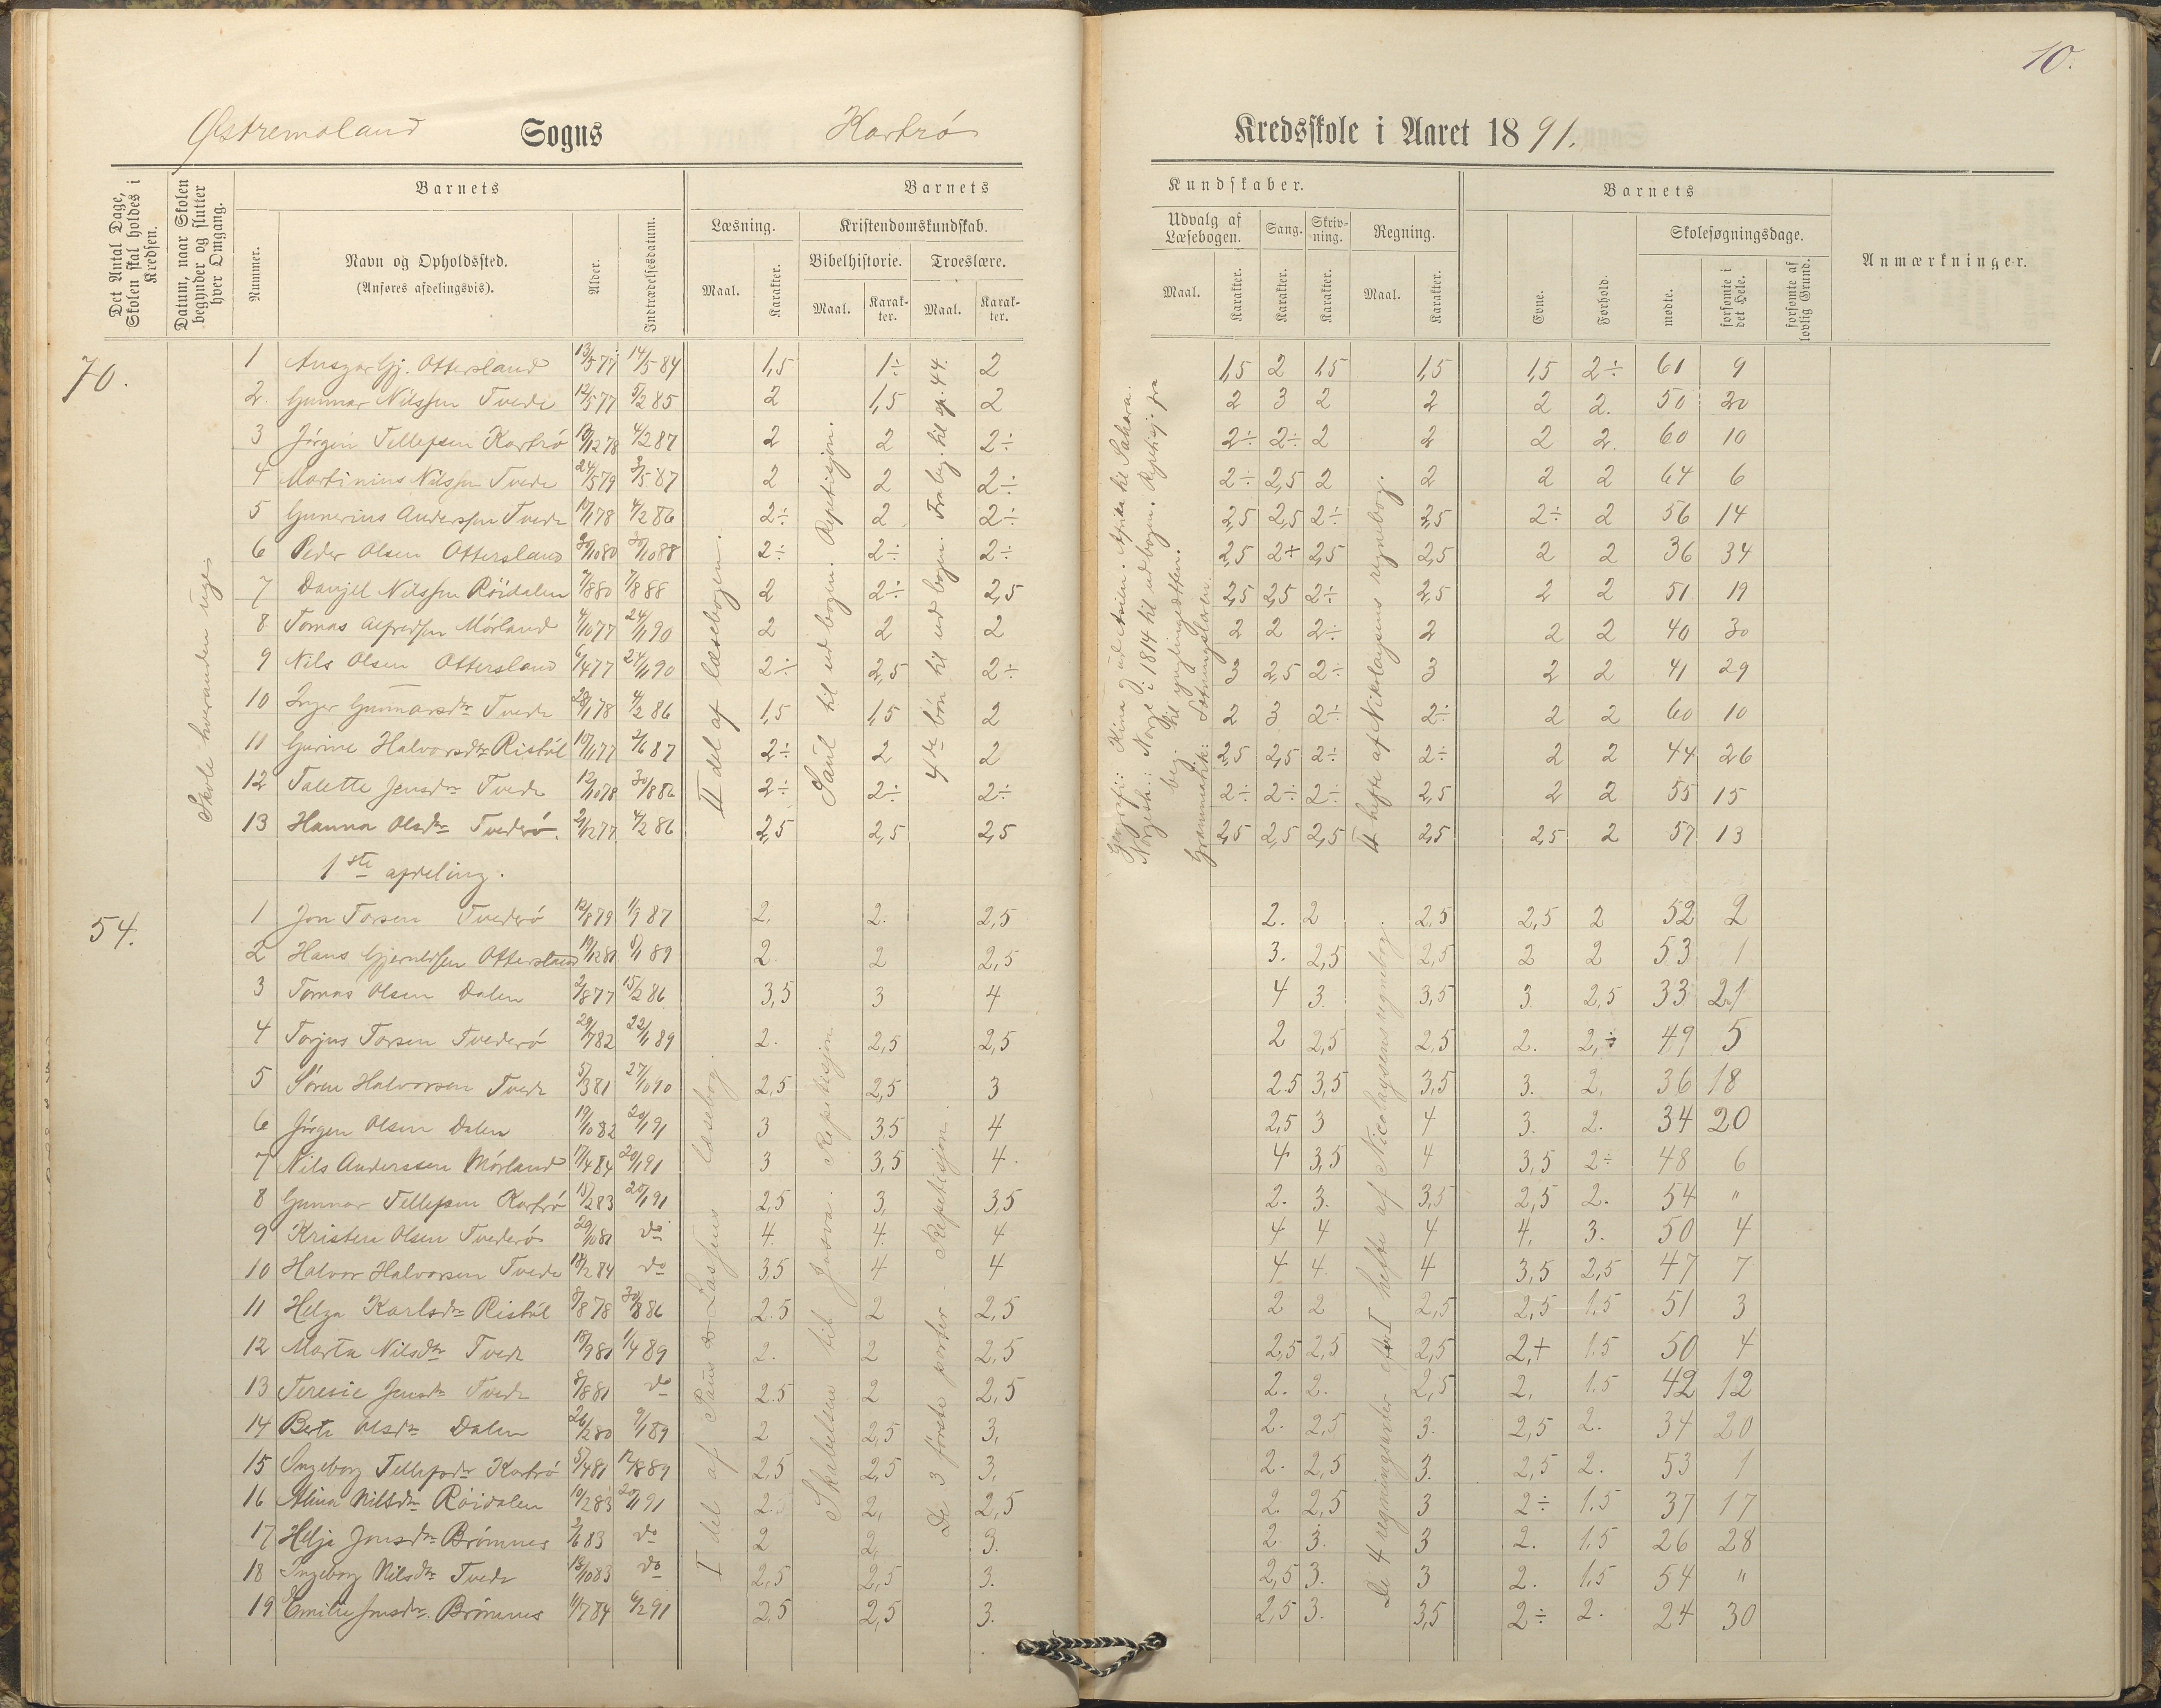 10.
Østremoland Sogns Hartrø Kredsskole i Aaret 1891.
Det Antal Dage, Skolen skal holdes i Kredsen.
Datum, naar Skolen begynder og slutter hver Omgang.
Barnets
Nummer.
Navn og Opholdssted.
(Anføres afdelingsvis).
Alder.
Indtrædelsesdatum.
Barnets Kundskaber.
Læsning. Kristendomskundskab. Udvalg af Læsebogen. Sang. Skrivning. Regning.
Bibelhistorie. Troeslære.
Maal. Karakter. Maal. Karakter. Maal. Karakter. Maal. Karakter. Karakter. Karakter. Maal. Karakter.
Barnets
Evne. Forhold. Skolesøgningsdage.
mødte. forsømte i det Hele. forsømte af lovlig Grund.
Anmærkninger.
70.
Skole hveranden uge
II del af læsebogen.
Saul til ud bogen. Repetisjon.
4de bøn til ud bogen. Fra beg. til sp. 44.
Norgesh: Norge i 1814 til ud bogen. Repetisj: fra
beg. til ynglingeætten.
Grammatik: Sætningslæren.
II hefte af Nikolaysens regnebog.
1 Ansgar Gj. Ottersland 13/5 77 14/5 84 1,5 1÷ 2 1,5 2 1,5 1,5 1,5 2÷ 61 9
2. Gunnar Nilssen Tvede 12/5 77 5/2 85 2 1,5 2 2 3 2 2 2 2. 50 20
3 Jørgen Tellefsen Kartrø 19/12 78 4/2 87 2 2 2÷ 2÷ 2÷ 2 2 2 2 60 10
4 Martinius Nilssen Tvede 24/5 79 3/5 87 2 2 2÷ 2÷ 2,5 2 2 2 2 64 6
5 Gunerius Anderssen Tvede 10/1 78 4/2 86 2÷ 2 2÷ 2,5 2,5 2÷ 2,5 2÷ 2 56 14
6 Peder Olsen Ottersland 30/10 80 30/10 88 2÷ 2÷ 2÷ 2,5 2÷ 2,5 2,5 2 2 36 34
7 Danjel Nilssen Röidalen 7/8 80 7/8 88 2 2÷ 2,5 2,5 2,5 2÷ 2,5 2 2 51 19
8 Tomas Alfredsen Mörland 4/10 77 24/11 90 2 2 2 2 2 2÷ 2 2 2 40 30
9 Nils Olsen Ottersland 6/4 77 24/11 90 2÷ 2,5 2÷ 3 2,5 2÷ 3 2 2 41 29
10 Inger Gunnarsdtr Tvede 28/1 78 4/2 86 1,5 1,5 2 2 3 2÷ 2÷ 2 2 60 10
11 Gurine Halvorsdtr Ristöl 10/11 77 2/6 87 2÷ 2 2 2,5 2,5 2÷ 2÷ 2 2 44 26
12 Talette Jensdtr Tvede 12/10 78 30/8 86 2÷ 2÷ 2÷ 2÷ 2÷ 2÷ 2,5 2 2 55 15
13 Hanna Olsdtr Tvederö. 2/12 77 4/2 86 2,5 2,5 2,5 2,5 2,5 2,5 2,5 2,5 2 57 13
1ste afdeling.
54.
I del af Paus & Lassens læsebog.
Skabelsen til Josva. Repetisjon
De 3 første parter. Repetisjon.
De 4 regningsarter efter I hefte af Nicolaysens regnebog.
1 Jon Torsen Tvederö 12/8 79 1/9 87 2. 2. 2,5 2. 2 2,5 2,5 2 52 2
2 Hans Gjeruldsen Ottersland 19/12 81 8/1 89 2. 2 2,5 3. 2,5 2,5 2 2 53 1
3 Tomas Olsen Dalen 2/8 77 15/2 86 3,5 3 4 4 3. 3,5 3. 2,5 33 21
4 Torjus Torsen Tvederö 29/7 82 22/1 89 2. 2,5 2,5 2 2,5 2,5 2. 2,÷ 49 5
5 Sören Halvorsen Tvede 5/3 81 27/10 90 2,5 2,5 3 2.5 3,5 3,5 3. 2, 36 18
6 Jörgen Olsen Dalen 19/10 82 20/1 91 3 3,5 4 2,5 3 4 3. 2. 34 20
7 Nils Anderssen Mörland 17/4 84 20/1 91 3 3,5 4. 4 3,5 4 3,5 2÷ 48 6
8 Gunnar Tellefsen Kartrö 15/2 83 20/1 91 2,5 3, 3,5 2. 3. 3,5 2,5 2. 54 "
9 Kristen Olsen Tvederö 29/10 81 do 4. 4. 4 4 4 4 4, 3. 50 4
10 Halvor Halvorsen Tvede 18/2 84 do 3,5 4 4 4 4. 4 3,5 2,5 47 7
11 Helga Karlsdtr Ristöl 8/8 78 30/8 86 2.5 2 2,5 2 2 2,5 2,5 1.5 51 3
12 Marta Nilsdtr Tvede 18/9 81 1/4 89 2. 2 2,5 2,5 2,5 2,5 2,+ 1.5 50 4
13 Teresie Jensdtr Tvede 8/8 81 do 2.5 2 2,5 2. 2. 2,5 2, 1.5 42 12
14 Berte Olsdtr Dalen 26/12 80 9/1 89 2 2,5 3, 2. 2,5 3. 2,5 2. 34 20
15 Ingeborg Tellefsdtr Kartrö 5/4 81 12/8 89 2,5 2,5 3, 2. 2,5 3. 2,5 2. 53 1
16 Alina Nilsdtr Röidalen 10/2 83 20/1 91 2. 2, 2,5 2. 2,5 3 2÷ 1.5 37 17
17 Helje Jonsdtr Brömnes 2/6 83 do 2 2, 3. 2 3. 3 2. 1.5 26 28
18 Ingeborg Nilsdtr Tvede 13/10 83 do 2,5 2,5 3. 2,5 3. 3 2. 1.5 54 "
19 Emilie Jonsdtr. Brömnes 11/7 84 6/2 91 2,5 2,5 3. 2,5 3. 3,5 2÷ 2. 24 30